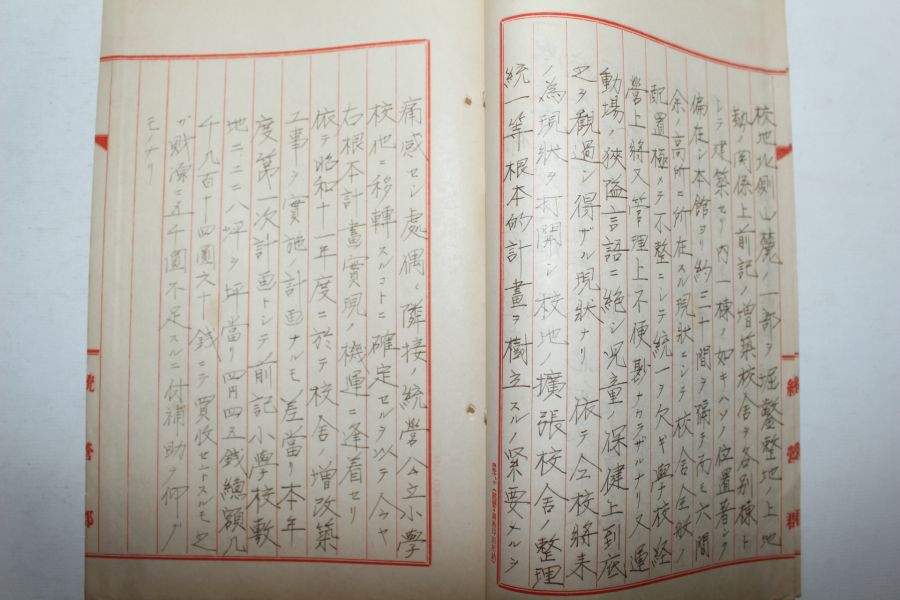 校地北側山麓ノ一部ヲ堀鑿整地ノ上地
勢ノ関係上前記ノ増築校舎ヲ各別棟ト
シテ建築セリ内一棟ノ如キハソノ位置著シク
偏在シ本館ヨリ約三十間ヲ隔テ而モ六間
余ノ高所ニ所在スル現状ニシテ校舎全般ノ
配置極メテ不整ニシテ統一ヲ欠ギ学校経
營上將又管理上不便尠ナカラザルナリ又運
動場ノ狹隘言語ニ絶シ児童ノ保健上到底
之ヲ觀過シ得ザル現狀ナリ 依テ全校將来
ノ為現狀ヲ打開シ校地ノ擴張校舎ノ整理
統一等根本的計畫ヲ樹立スルノ緊要ナルヲ
痛感セシ處偶〻隣接ノ統營公立小學
校他ニ移轉スルコトニ確定セルヲ以テ今ヤ
右根本計畫實現ノ機運ニ逢着セリ
依テ昭和十一年度ニ於テ校舎ノ増改築
工事ヲ實施ノ計画ナルモ差當リ本年
度第一次計画トシテ前記小學校敷
地二二二八坪ヲ坪當リ四円四五銭總額九
千九百十四圓六十銭ニテ買收セントスルモ之
ガ財源ニ五千圓不足スルニ付補助ヲ仰グ
モナリ
統營郡
統營郡